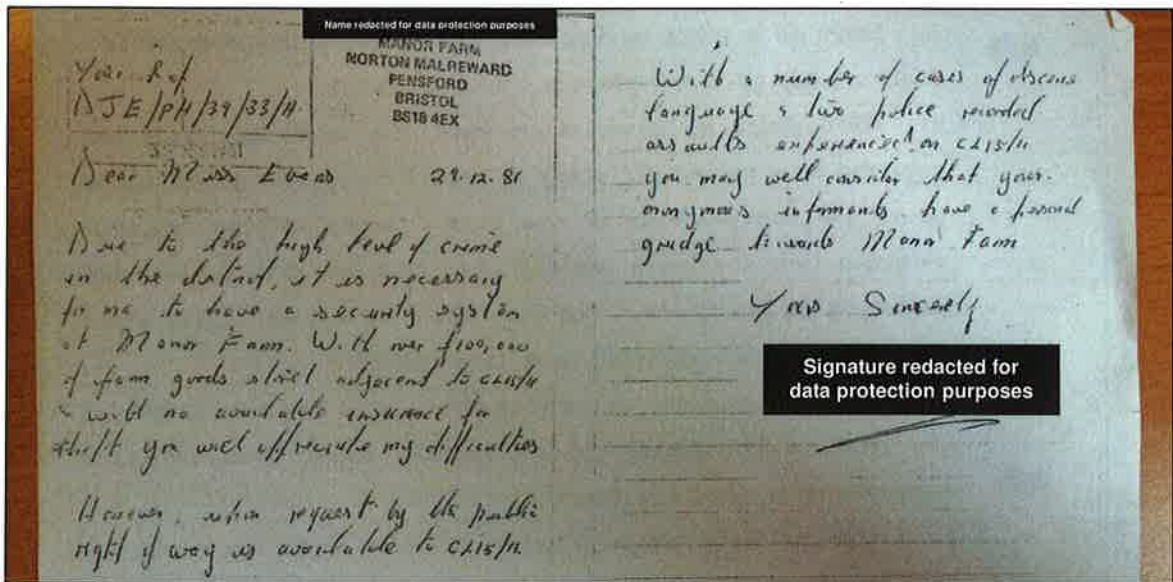 Name redacted for data protection purposes
MANOR FARM
NORTON MALREWARD
PENSFORD
BRISTOL
BS18 4EX
Your Ref
DJE/PH/39/33/H
Dear Miss Evens 29.12.81
Due to the high level of crime
in the district, it is necessary
for me to have a security system
at Manor Farm. With over £100,000
of farm goods adjacent to CL15/11
& with no available insurance for
theft you will appreciate my difficulties
However, when request by the public
right of way is available to CL15/11.
With a number of cases of obscene
language & two police recorded
assaults experienced on CL15/11
you may well consider that your
anonymous informants have a personal
grudge towards Manor Farm
Yours Sincerely
Signature redacted for
data protection purposes